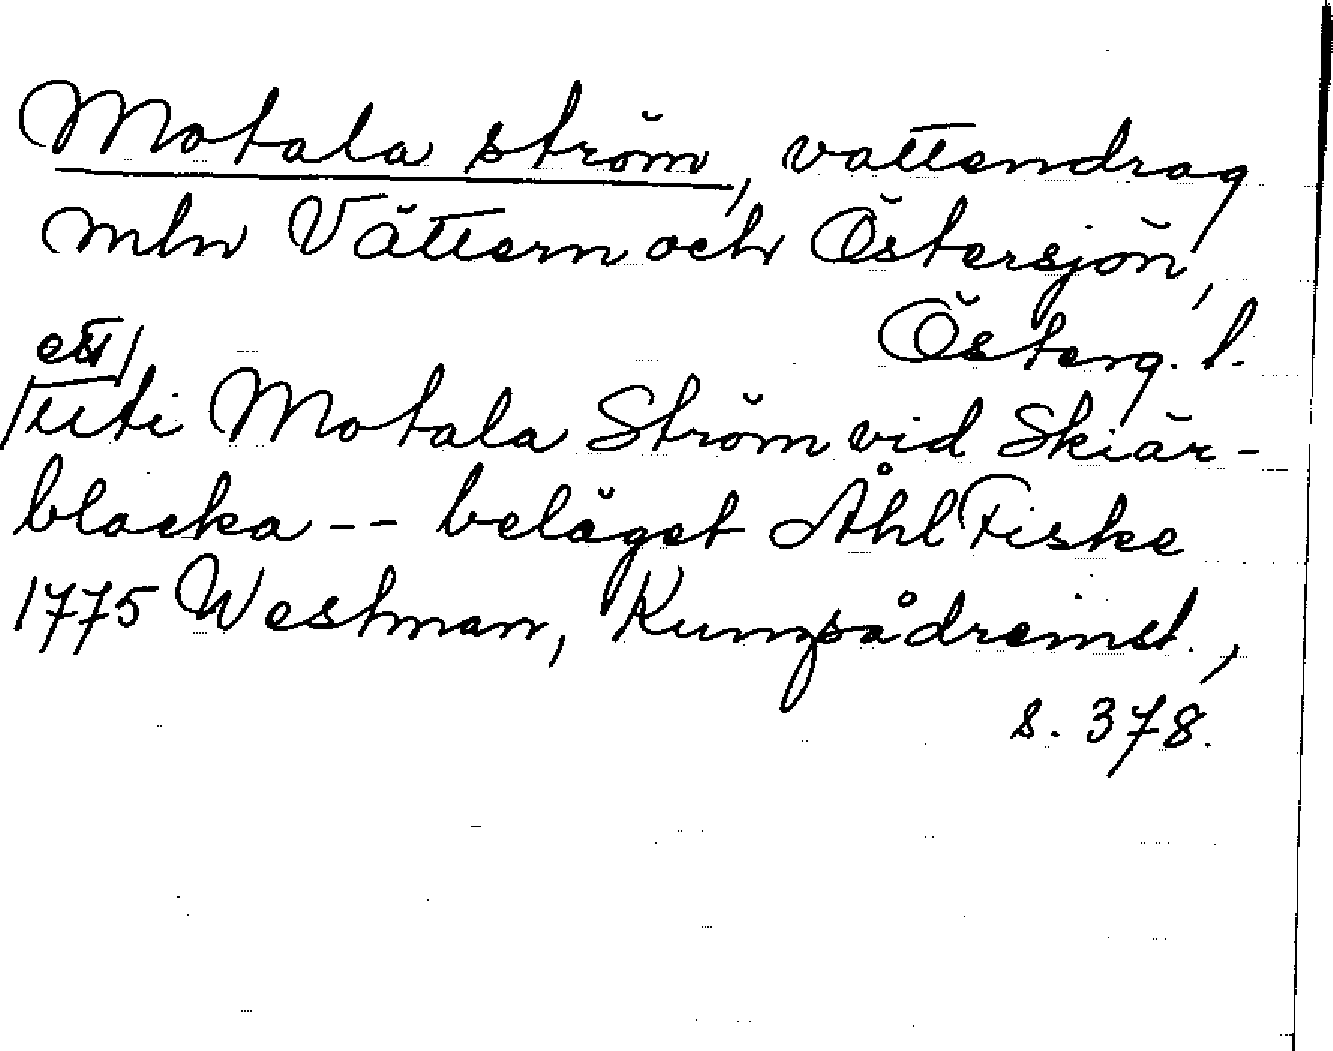 Motala ström, vattendrag
mln Vättern och Östersjön,
Österg. l.
ett
uti Motala Ström vid Skiär-
blacka -- beläget Åhl Fiske
1775 Westman, Kungsådreinst.,
s. 378.